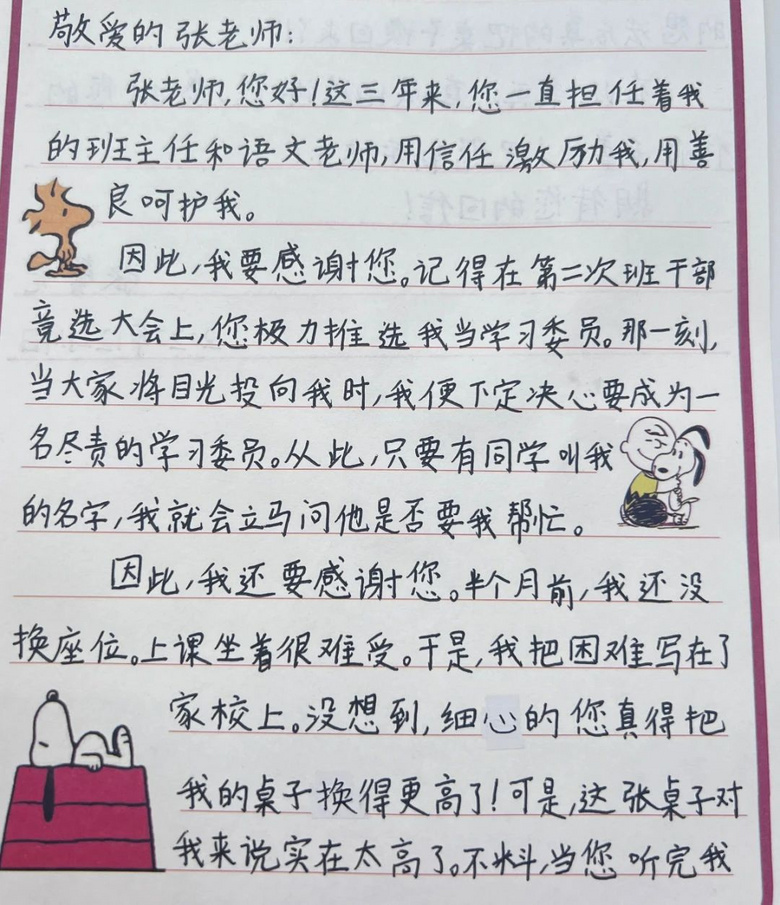 敬爱的张老师:
张老师,您好!这三年来,您一直担任着我
的班主任和语文老师,用信任激励我,用善
良呵护我。
因此,我要感谢您。记得在第二次班干部
竟选大会上,您极力推选我当学习委员。那一刻,
当大家将目光投向我时,我便下定决心要成为一
名尽责的学习委员。从此,只要有同学叫我
的名字,我就会立马问他是否要我帮忙。
因此,我还要感谢您。半个月前,我还没
换座位。上课坐着很难受。于是,我把困难写在了
家校上。没想到,细心的您真得把
我的桌子换得更高了!可是,这张桌子对
我来说实在太高了。不料,当您听完我